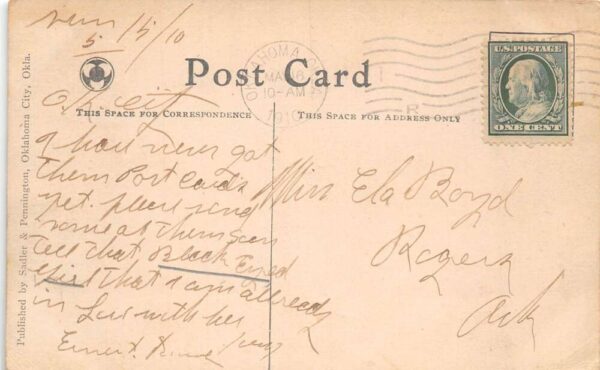 5/15/10
Post Card
OKLAHOMA
10-AM
1910
U.S. POSTAGE
ONE CENT
O.K. City
THIS SPACE FOR CORRESPONDENCE
THIS SPACE FOR ADDRESS ONLY
I have never got
them Post Cards
yet. please send
some of them soon
tell that Black Eyed
girl that I am allready
in Love with her
Ernest
Miss Ela Boyd
Rogers
Ark
Published by Sadler & Pennington, Oklahoma City, Okla.